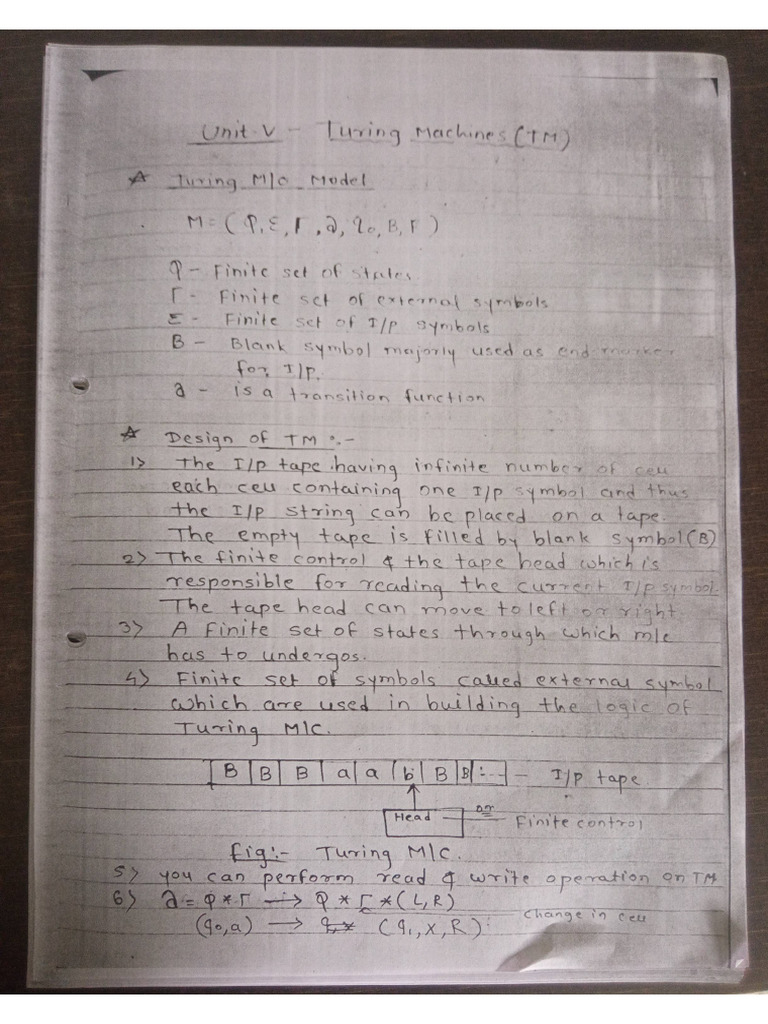 Unit V - Turing Machines (TM)
☆ Turing M/C Model
M = (Q, Σ, Γ, ∂, q0, B, F)
Q - Finite set of states.
Γ - Finite set of external symbols
Σ - Finite set of I/p symbols
B - Blank symbol majorly used as end marker
for I/P.
∂ - is a transition function
☆ Design of TM :-
1> The I/p tape having infinite number of cell
each cell containing one I/p symbol and thus
the I/p string can be placed on a tape.
The empty tape is filled by blank symbol (B)
2> The finite control & the tape head which is
responsible for reading the current I/p symbol.
The tape head can move to left or right.
3> A Finite set of states through which m/c
has to undergos.
4> Finite set of symbols called external symbol
which are used in building the logic of
Turing M/C.
B B B a a b B B ... - I/p tape
Head or Finite control
fig:- Turing M/C.
5> you can perform read & write operation on TM
6> ∂ = Q * Γ → Q * Γ * (L, R)
(q0, a) → (q1, X, R) Change in cell